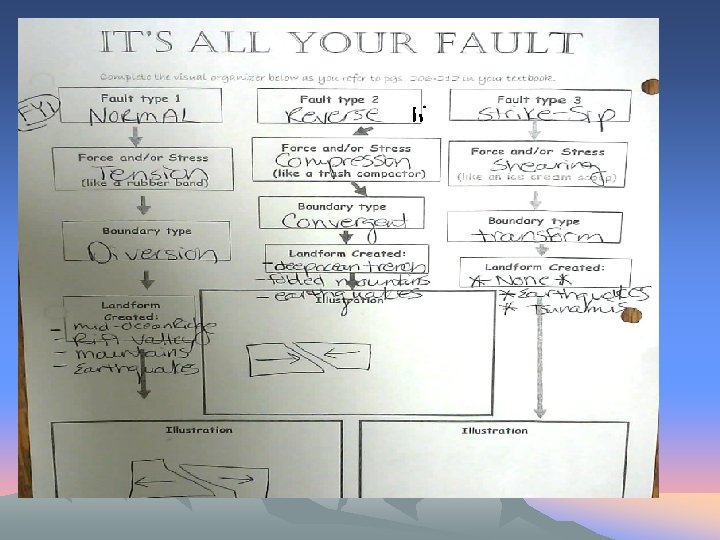 IT'S ALL YOUR FAULT
Complete the visual organizer below as you refer to pgs. 206-212 in your textbook.
FYI
Fault type 1
NORMAL
Force and/or Stress
Tension
(like a rubber band)
Boundary type
Diversion
Landform
Created:
- mid-ocean Ridge
- Rift Valley
- mountains
- Earthquakes
Illustration
Fault type 2
Reverse
Force and/or Stress
Compression
(like a trash compactor)
Boundary type
Convergent
Landform Created:
- deep ocean trench
- folded mountains
- earthquakes
Illustration
Fault type 3
Strike-Slip
Force and/or Stress
Shearing
(like an ice cream scoop)
Boundary type
transform
Landform Created:
* None *
* Earthquakes
* Tsunamis
Illustration